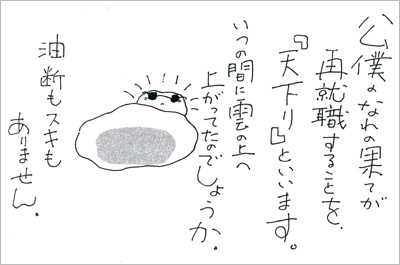 公僕のなれの果てが
再就職することを、
『天下り』といいます。
いつの間に雲の上へ
上がってたのでしょうか。
油断もスキも
ありません。